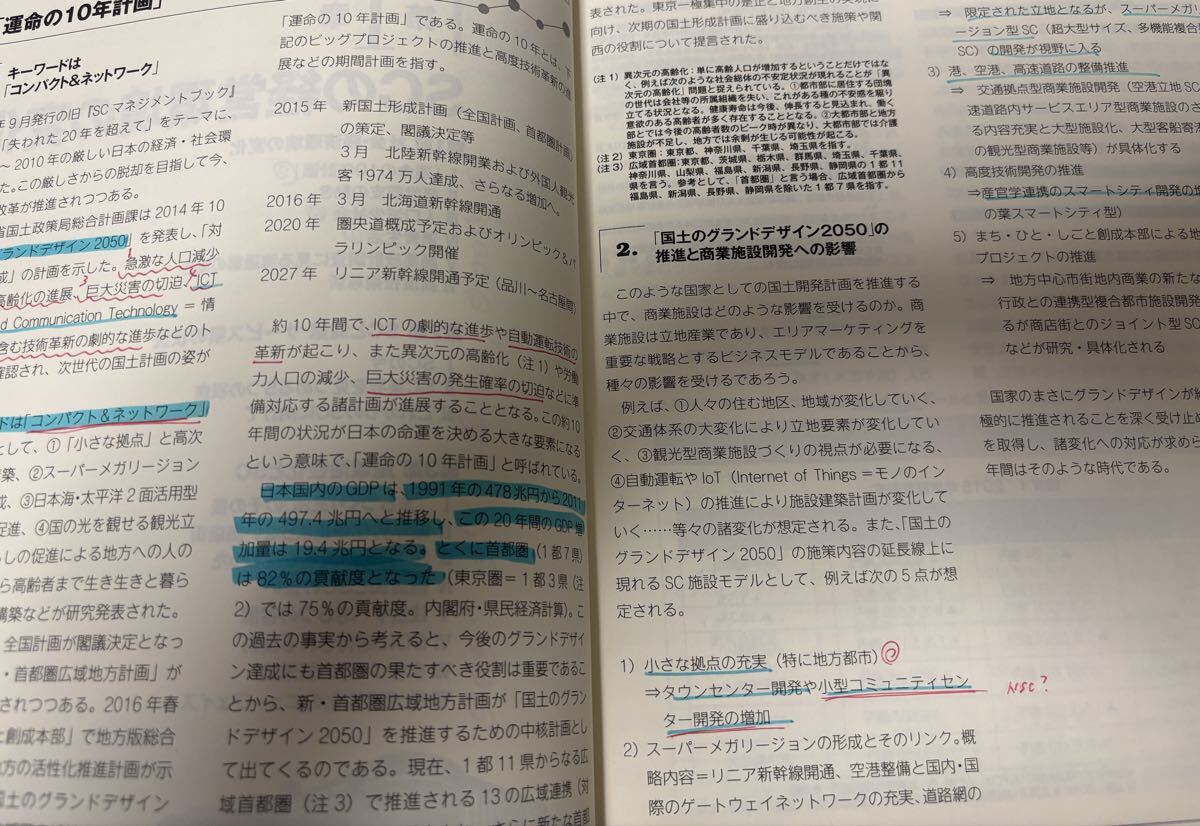 「運命の10年計画」
キーワードは
「コンパクト&ネットワーク」
年9月発行の旧『SCマネジメントブック』
「失われた20年を超えて」をテーマに、
～2010年の厳しい日本の経済・社会環
た。この厳しさからの脱却を目指して今、
改革が推進されつつある。
省国土政策局総合計画課は2014年10
ランドデザイン2050」を発表し、「対
成」の計画を示した。急激な人口減少
高齢化の進展、巨大災害の切迫、ICT
d Communication Technology＝情
含む技術革新の劇的な進歩などのト
確認され、次世代の国土計画の姿が
ドは「コンパクト&ネットワーク」
として、①「小さな拠点」と高次
築、②スーパーメガリージョン
成、③日本海・太平洋2面活用型
促進、④国の光を観せる観光立
らしの促進による地方への人の
ら高齢者まで生き生きと暮ら
構築などが研究発表された。
全国計画が閣議決定となっ
・首都圏広域地方計画」が
されつつある。2016年春
と創成本部」で地方版総合
方の活性化推進計画が示
国土のグランドデザイン
「運命の10年計画」である。運命の10年とは、下
記のビッグプロジェクトの推進と高度技術革新の進
展などの期間計画を指す。
2015年 新国土形成計画（全国計画、首都圏計画）
の策定、閣議決定等
3月 北陸新幹線開業および外国人観光
客1974万人達成、さらなる増加へ。
2016年 3月 北海道新幹線開通
2020年 圏央道概成予定およびオリンピック&パ
ラリンピック開催
2027年 リニア新幹線開通予定（品川～名古屋間）
約10年間で、ICTの劇的な進歩や自動運転技術の
革新が起こり、また異次元の高齢化（注1）や労働
力人口の減少、巨大災害の発生確率の切迫などに準
備対応する諸計画が進展することとなる。この約10
年間の状況が日本の命運を決める大きな要素になる
という意味で、「運命の10年計画」と呼ばれている。
日本国内のGDPは、1991年の478兆円から2011
年の497.4兆円へと推移し、この20年間のGDP増
加量は19.4兆円となる。とくに首都圏（1都7県）
は82％の貢献度となった（東京圏＝1都3県（注
2）では75％の貢献度。内閣府・県民経済計算）。こ
の過去の事実から考えると、今後のグランドデザイ
ン達成にも首都圏の果たすべき役割は重要であるこ
とから、新・首都圏広域地方計画が「国土のグラン
ドデザイン2050」を推進するための中核計画とし
て出てくるのである。現在、1都11県からなる広
域首都圏（注3）で推進される13の広域連携（対
表された。東京一極集中の是正と地方創生の実現に
向け、次期の国土形成計画に盛り込むべき施策や関
西の役割について提言された。
（注1）異次元の高齢化：単に高齢人口が増加するということだけではな
く、例えば次のような社会総体の不安定状況が現れることが「異
次元の高齢化」問題と捉えられている。①都市部に居住する団塊
の世代は会社等の所属組織を失い、これがある種の不安感を駆り
立てる状況となる。健康寿命は今後、伸長すると見込まれ、働く
意欲のある高齢者が多く存在することとなる。②大都市部と地方
部とでは今後の高齢者数のピーク時が異なり、大都市部では介護
施設が不足し、地方では余剰が生じる可能性が起こる。
（注2）東京圏：東京都、神奈川県、千葉県、埼玉県を指す。
（注3）広域首都圏：東京都、茨城県、栃木県、群馬県、埼玉県、千葉県、
神奈川県、山梨県、福島県、新潟県、長野県、静岡県の1都11
県を言う。参考として、「首都圏」と言う場合、広域首都圏から
福島県、新潟県、長野県、静岡県を除いた1都7県を指す。
2. 「国土のグランドデザイン2050」の
推進と商業施設開発への影響
このような国家としての国土開発計画を推進する
中で、商業施設はどのような影響を受けるのか。商
業施設は立地産業であり、エリアマーケティングを
重要な戦略とするビジネスモデルであることから、
種々の影響を受けるであろう。
例えば、①人々の住む地区、地域が変化していく、
②交通体系の大変化により立地要素が変化してい
く、③観光型商業施設づくりの視点が必要になる、
④自動運転やIoT（Internet of Things＝モノのイン
ターネット）の推進により施設建築計画が変化して
いく……等々の諸変化が想定される。また、「国土の
グランドデザイン2050」の施策内容の延長線上に
現れるSC施設モデルとして、例えば次の5点が想
定される。
1）小さな拠点の充実（特に地方都市）
⇒タウンセンター開発や小型コミュニティセン
ター開発の増加
NSC？
2）スーパーメガリージョンの形成とそのリンク。概
略内容＝リニア新幹線開通、空港整備と国内・国
際のゲートウェイネットワークの充実、道路網の
⇒ 限定された立地となるが、スーパーメガ
ージョン型SC（超大型サイズ、多機能複合
SC）の開発が視野に入る
3）港、空港、高速道路の整備推進
⇒ 交通拠点型商業施設開発（空港立地SC
速道路内サービスエリア型商業施設のさ
る内容充実と大型施設化、大型客船寄港
の観光型商業施設等）が具体化する
4）高度技術開発の推進
⇒産官学連携のスマートシティ開発の増
の葉スマートシティ型）
5）まち・ひと・しごと創成本部による地
プロジェクトの推進
⇒ 地方中心市街地内商業の新たな
行政との連携型複合都市施設開発
るが商店街とのジョイント型SC
などが研究・具体化される
国家のまさにグランドデザインが続
極的に推進されることを深く受け止め
を取得し、諸変化への対応が求めら
年間はそのような時代である。